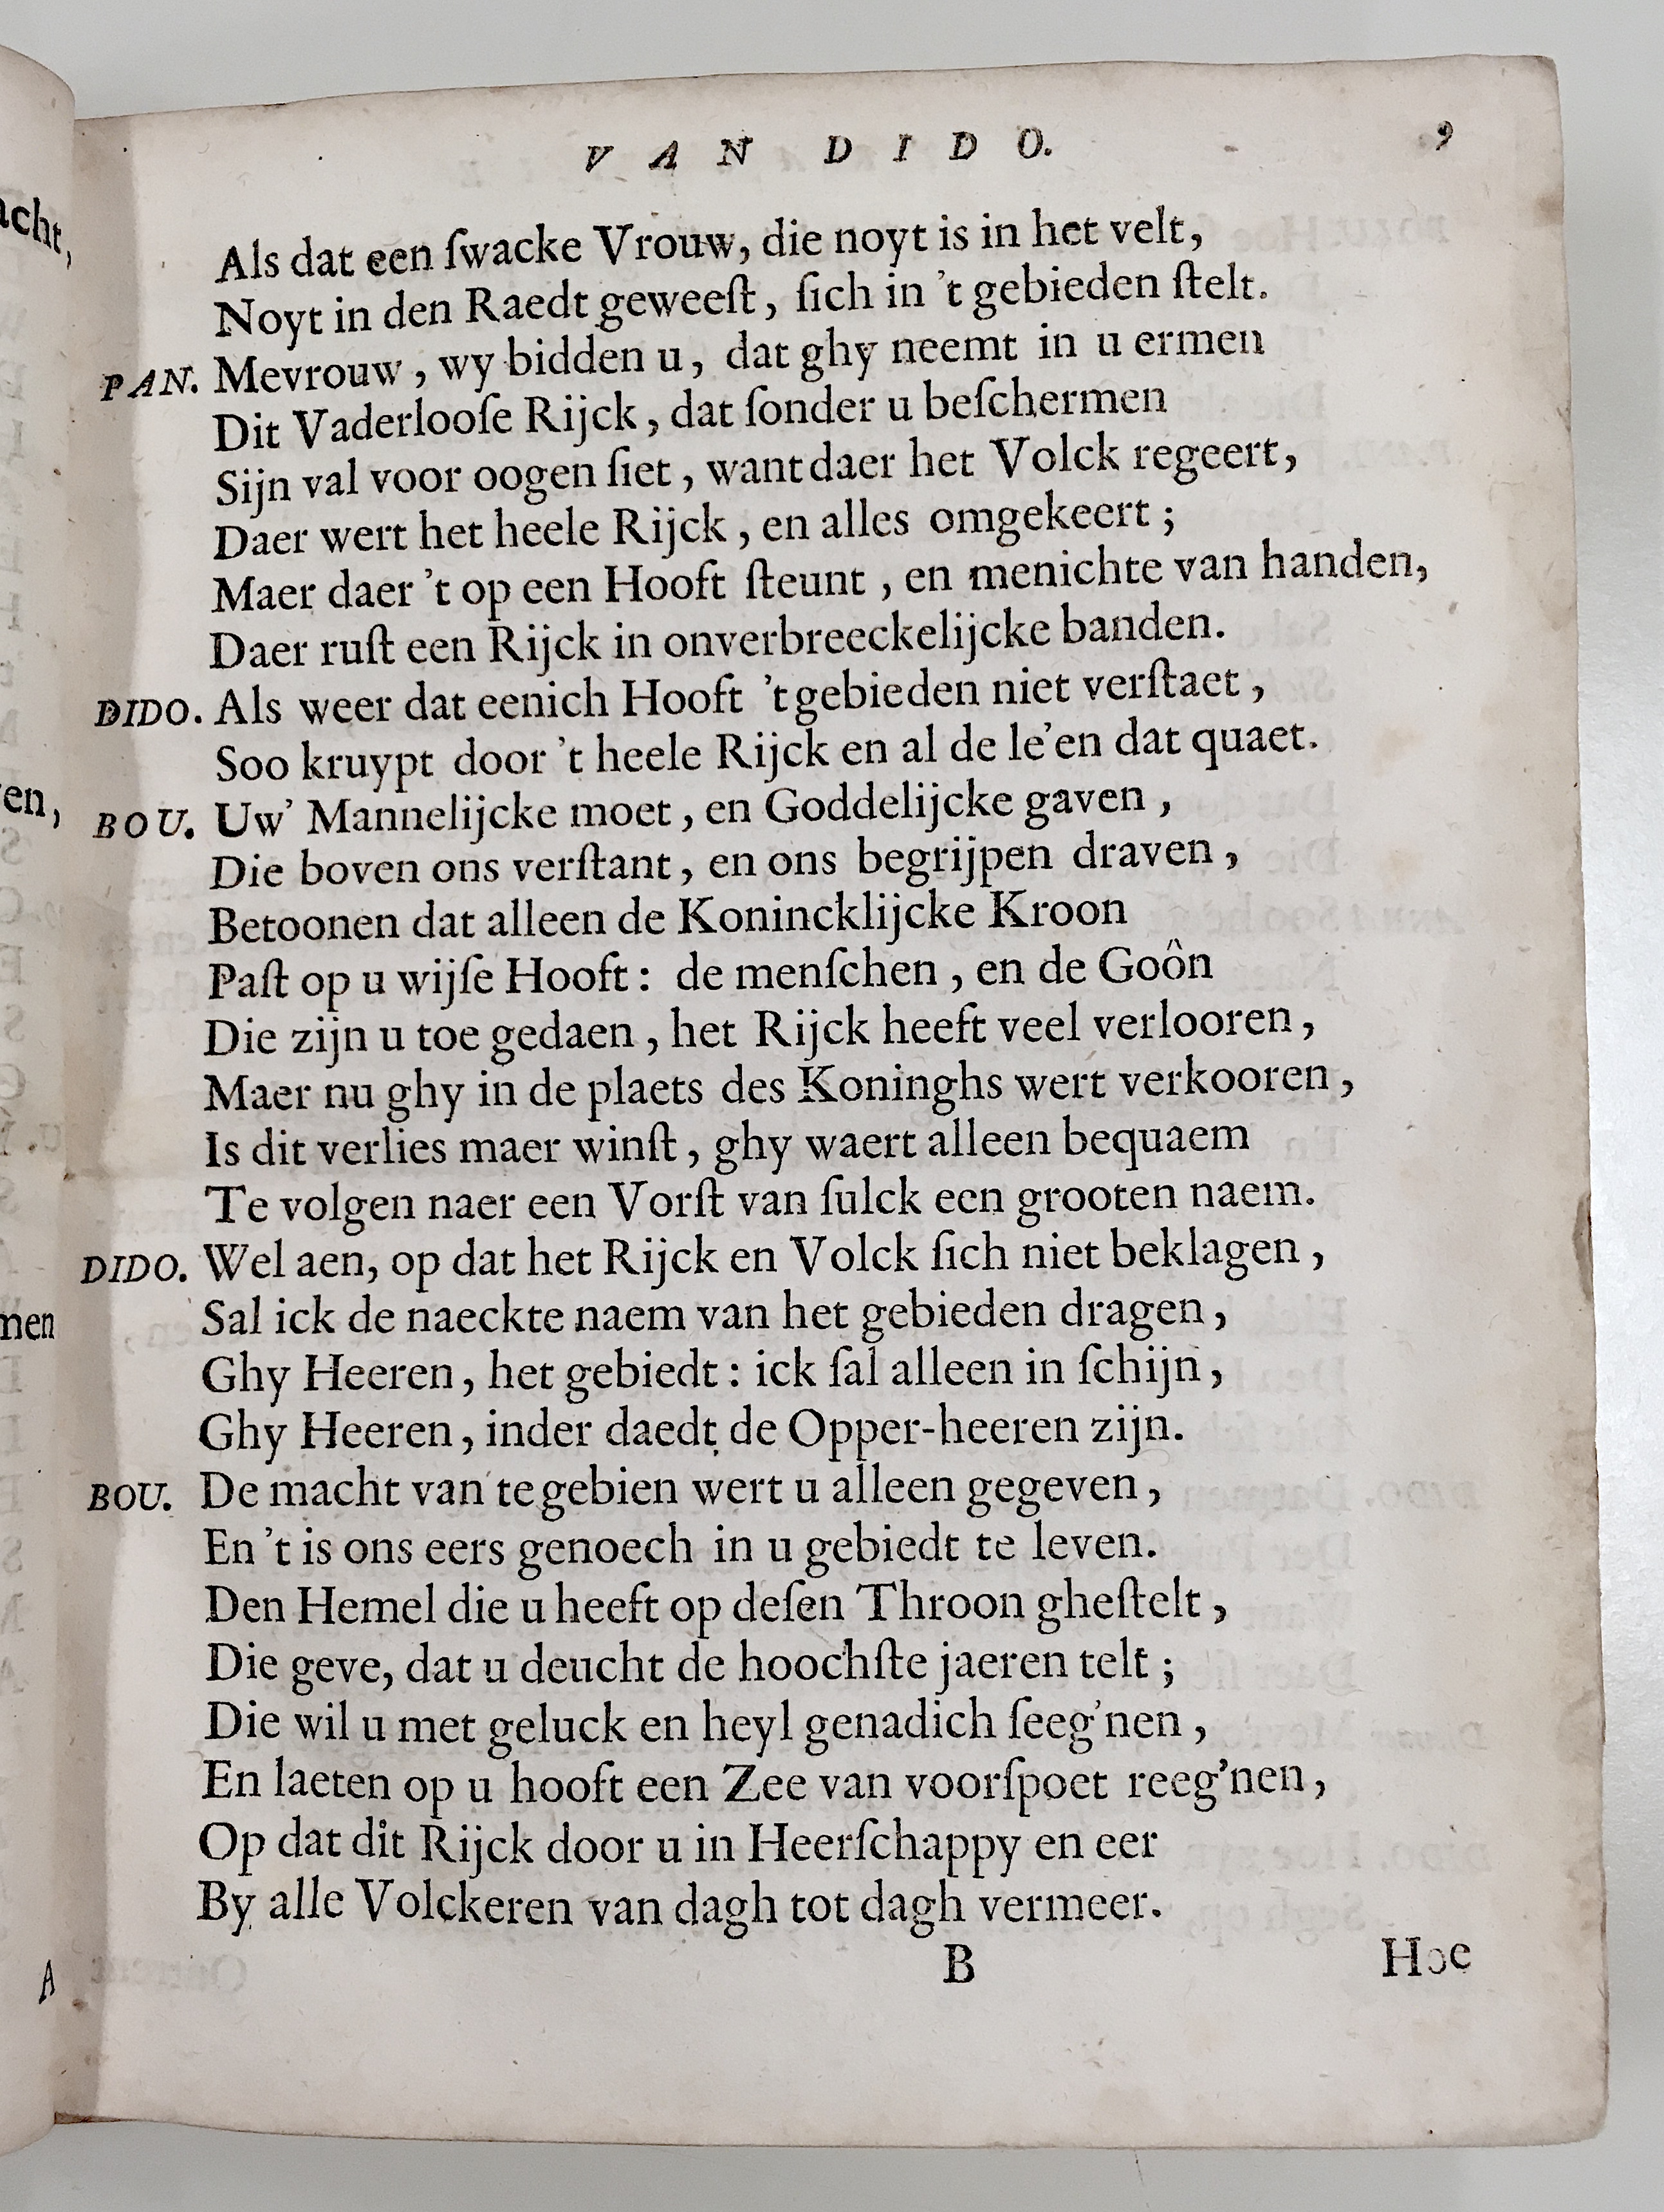 VAN DIDO. 9
Als dat een ſwacke Vrouw, die noyt is in het velt,
Noyt in den Raedt geweeſt, ſich in 't gebieden ſtelt.
PAN. Mevrouw, wy bidden u, dat ghy neemt in u ermen
Dit Vaderlooſe Rijck, dat ſonder u beſchermen
Sijn val voor oogen ſiet, want daer het Volck regeert,
Daer wert het heele Rijck, en alles omgekeert;
Maer daer 't op een Hooft ſteunt, en menichte van handen,
Daer ruſt een Rijck in onverbreeckelijcke banden.
DIDO. Als weer dat eenich Hooft 't gebieden niet verſtaet,
Soo kruypt door 't heele Rijck en al de le'en dat quaet.
BOU. Uw' Mannelijcke moet, en Goddelijcke gaven,
Die boven ons verſtant, en ons begrijpen draven,
Betoonen dat alleen de Konincklijcke Kroon
Paſt op u wijſe Hooft: de menſchen, en de Goôn
Die zijn u toe gedaen, het Rijck heeft veel verlooren,
Maer nu ghy in de plaets des Koninghs wert verkooren,
Is dit verlies maer winſt, ghy waert alleen bequaem
Te volgen naer een Vorſt van ſulck een grooten naem.
DIDO. Wel aen, op dat het Rijck en Volck ſich niet beklagen,
Sal ick de naeckte naem van het gebieden dragen,
Ghy Heeren, het gebiedt: ick ſal alleen in ſchijn,
Ghy Heeren, inder daedt de Opper-heeren zijn.
BOU. De macht van te gebien wert u alleen gegeven,
En 't is ons eers genoech in u gebiedt te leven.
Den Hemel die u heeft op deſen Throon gheſtelt,
Die geve, dat u deucht de hoochſte jaeren telt;
Die wil u met geluck en heyl genadich ſeeg'nen,
En laeten op u hooft een Zee van voorſpoet reeg'nen,
Op dat dit Rijck door u in Heerſchappy en eer
By alle Volckeren van dagh tot dagh vermeer.
B Hoe